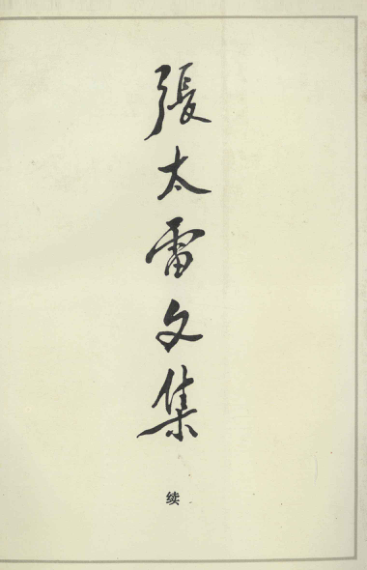 張太雷文集
续